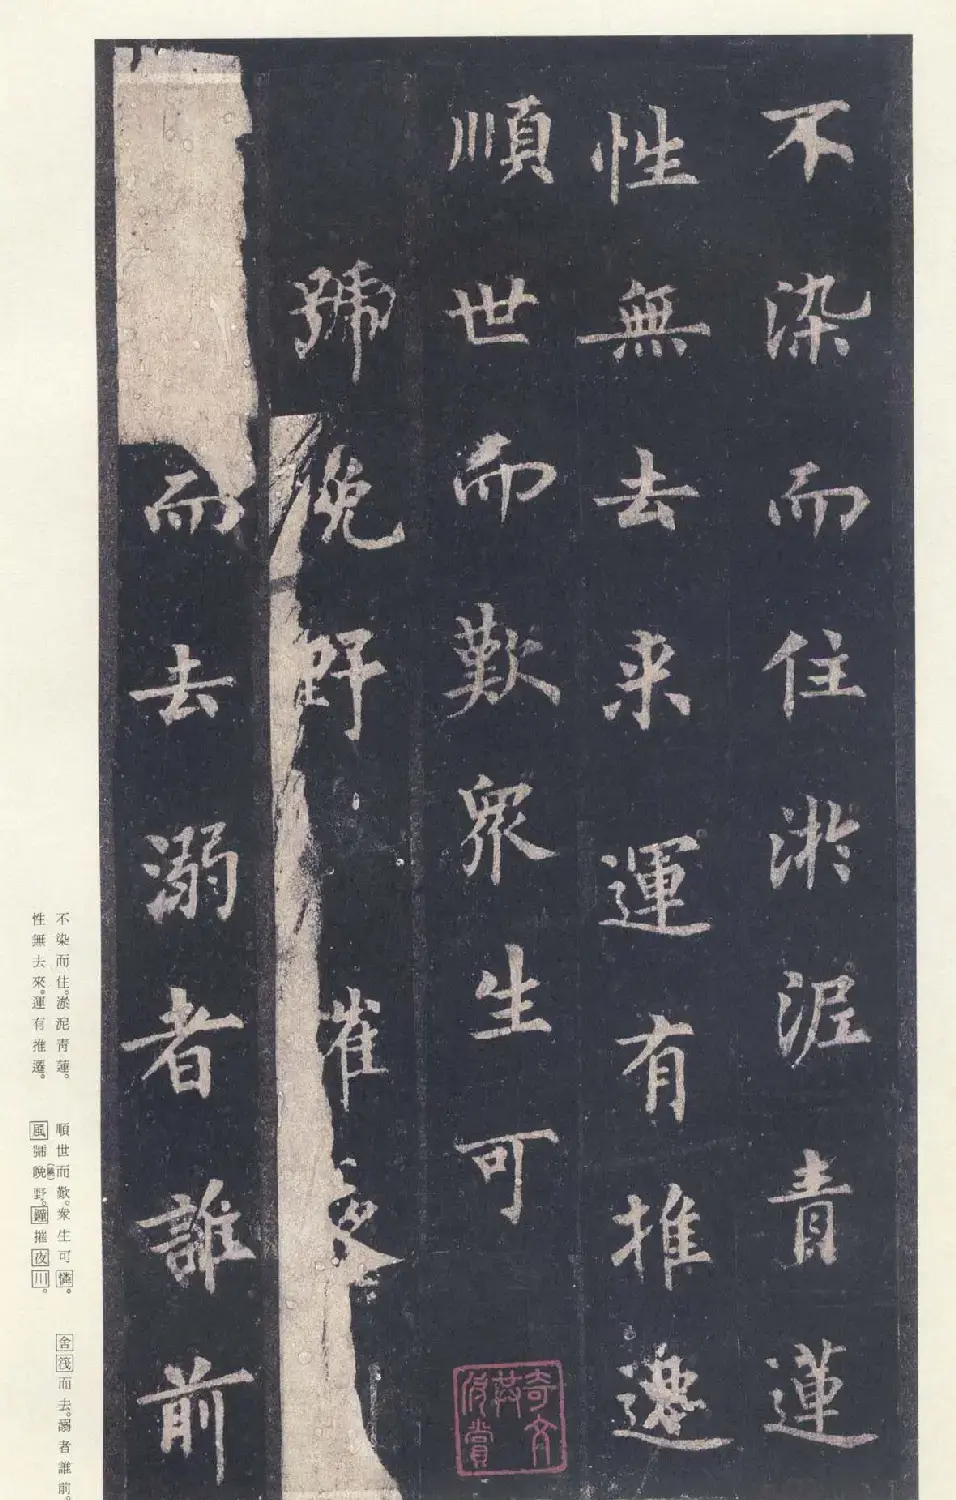 不染而住淤泥青蓮
性無去来運有推遷
順世而歎衆生可
號晚野 摧夜
而去溺者誰前
奇文共欣賞
不染而住。淤泥青蓮。
性無去來。運有推遷。
順世而歎。衆生可憐。
風號晚野。鐘摧夜川。
舍筏而去。溺者誰前。